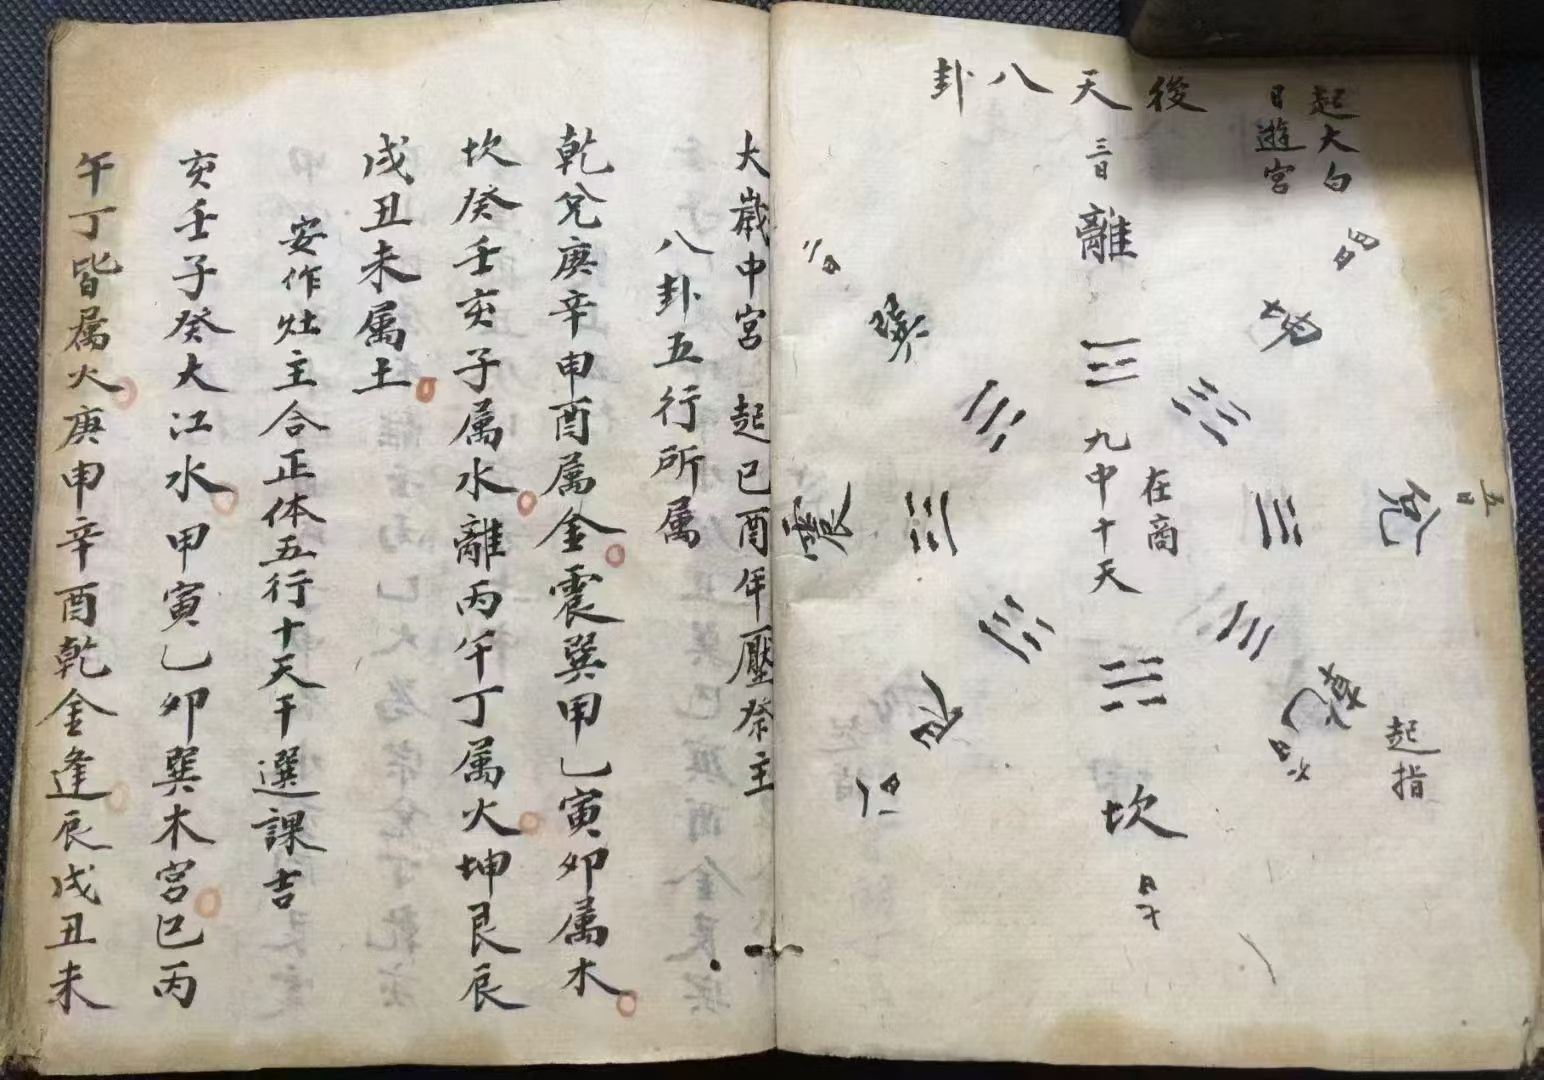 起大白
日遊宮
後天八卦
三日
離
四日
坤
巽
兌
五日
震
九中十天
在商
乾
六日
起指
艮
坎
七日
大歲中宮　起已酉年壓祭主
八卦五行所属
乾兌庚辛申酉属金震巽甲乙寅卯属木
坎癸壬亥子属水離丙午丁属火坤艮辰
戌丑未属土
安作灶主合正体五行十天干選課吉
亥壬子癸大江水甲寅乙卯巽木宮巳丙
午丁皆属火庚申辛酉乾金逢辰戊丑未